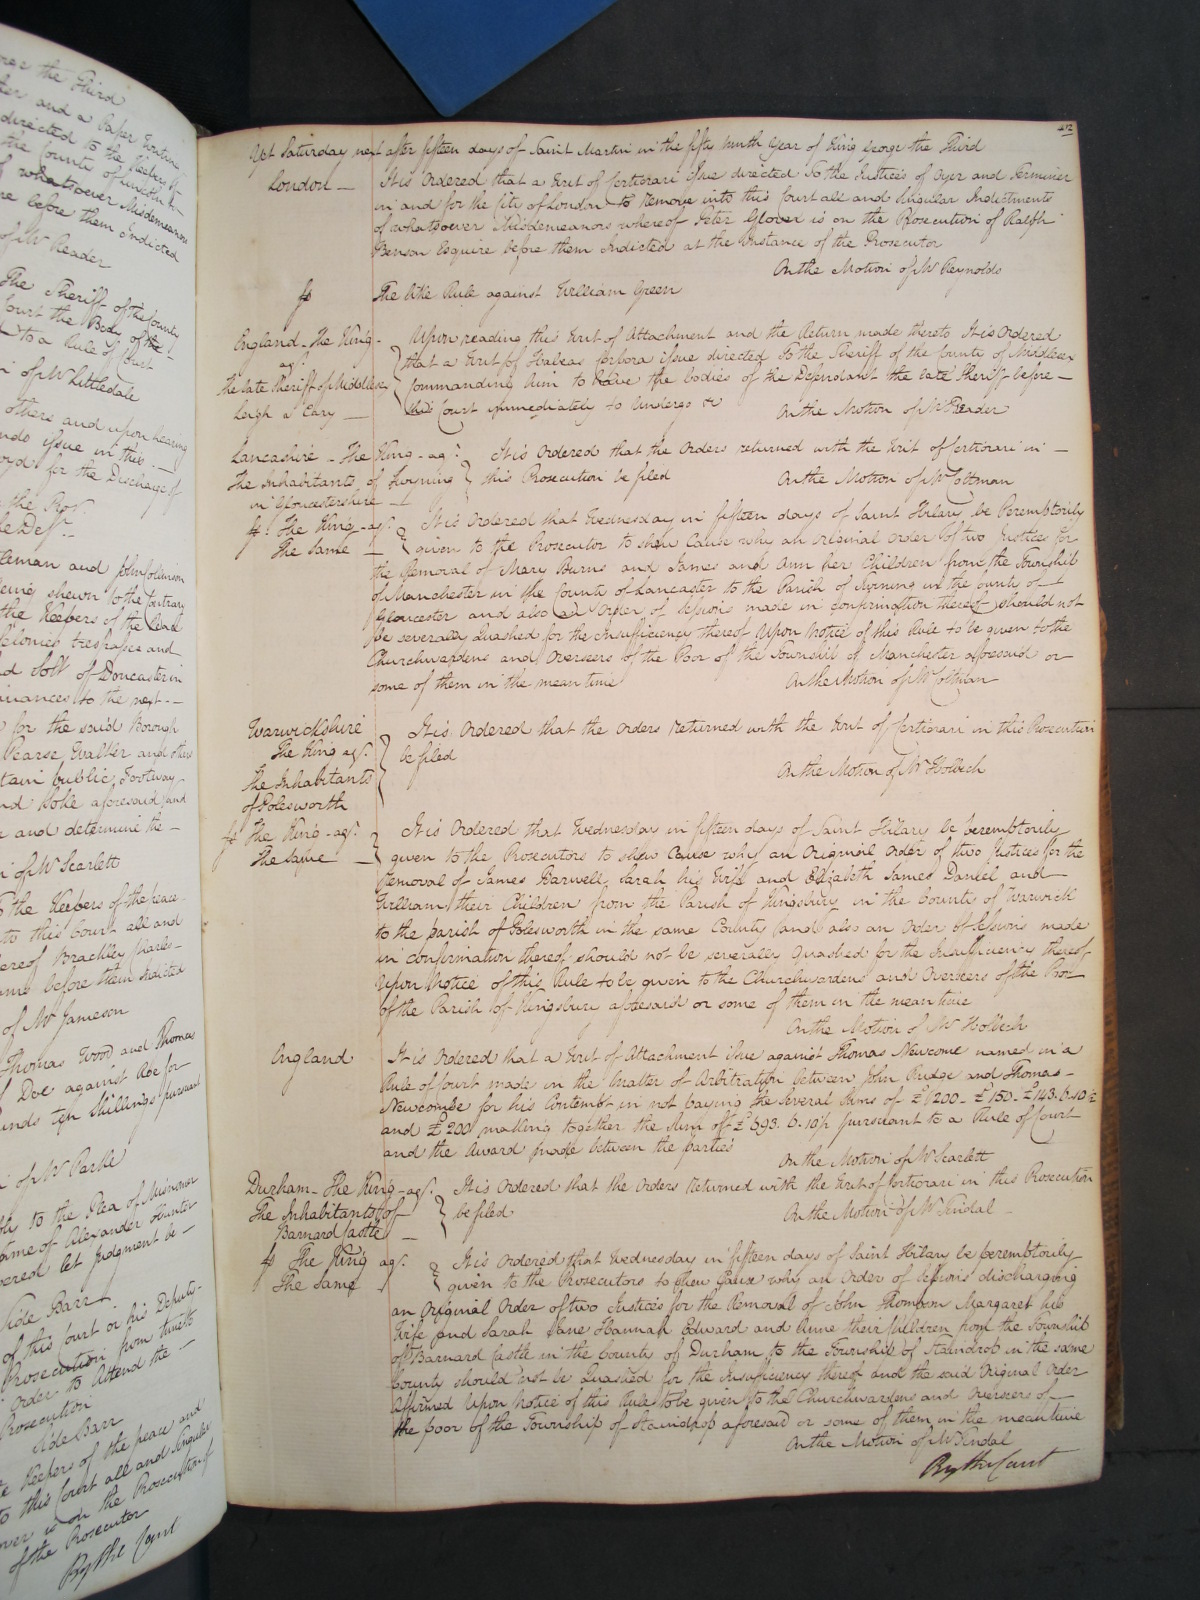 orge the Third
ter and a Paper Writing
directed to the Keepers of
the County of Lincoln
whatsoever Misdemeanors
are before them Indicted
of Mr Reader
The Sheriff of the County
Court the Body of the
to a Rule of Court
of Mr Littledale
others and upon hearing
issue in this
for the Discharge of
the Pros.
Def.
leman and John Johnson
being shewn to the contrary
the Keepers of the Peace
Felonies trespasses and
and Soke of Doncaster in
to the next
for the said Borough
Pearse Walker and others
tain public Footway
and Soke aforesaid and
and determine the
of Mr Scarlett
to the Keepers of the peace
to this Court all and
ereof Brackley Charles
before them Indicted
of Mr Jameson
Thomas Wood and Thomas
Doe against Roe for
unds ten Shillings pursuant
of Mr Parke
to the Plea of Misnomer
name of Alexander Hunter
ered let Judgment be
Side Barr
of this Court or his Deputy
Prosecution from time to
Order to Attend the
Prosecution
Side Barr
Keepers of the peace and
to this Court all and Singular
over is on the Prosecution of
of the Prosecutor
By the Court
402
Yet Saturday next after fifteen days of Saint Martin in the fifty ninth Year of King George the Third
London It is Ordered that a Writ of Certiorari issue directed To the Justices of Oyer and Terminer
in and for the City of London to remove into this Court all and Singular Indictments
of whatsoever Misdemeanors whereof Peter Glover is on the Prosecution of Ralph
Benson Esquire before them Indicted at the Instance of the Prosecutor
On the Motion of Mr Reynolds
fs The like Rule against William Green
England The King Upon reading this Writ of Attachment and the Return made thereto It is Ordered
agt. that a Writ of Habeas Corpora issue directed To the Sheriff of the County of Middlesex
the late Sheriff of Middlesex Commanding him to have the bodies of the Defendant the late Sheriff before
Leigh a Cary this Court immediately to Undergo &c On the Motion of Mr Reader
Lancashire The King agt. It is Ordered that the Orders returned with the Writ of Certiorari in
The Inhabitants of Horning this Prosecution be filed On the Motion of Mr Coltman
in Gloucestershire
fs. The King agt. It is Ordered that Wednesday in fifteen days of Saint Hilary be Peremptorily
The Same given to the Prosecutor to shew Cause why an original order of two Justices for
the Removal of Mary Burns and James and Ann her Children from the Township
of Manchester in the County of Lancaster to the Parish of Horning in the County of
Gloucester and also an Order of Sessions made in confirmation thereof should not
be severally Quashed for the insufficiency thereof Upon Notice of this Rule to be given to the
Churchwardens and Overseers of the Poor of the Township of Manchester aforesaid or
some of them in the mean time On the Motion of Mr Coltman
Warwickshire It is Ordered that the Orders Returned with the Writ of Certiorari in this Prosecution
The King agt. be filed
the Inhabitants On the Motion of Mr Holbech
of Polesworth
fs The King agt. It is Ordered that Wednesday in fifteen days of Saint Hilary be peremptorily
The Same given to the Prosecutors to shew Cause why an Original Order of two Justices for the
Removal of James Barwell Sarah his Wife and Elizabeth James Daniel and
William their Children from the Parish of Kingsbury in the County of Warwick
to the parish of Polesworth in the same County and also an Order of Sessions made
in confirmation thereof should not be severally Quashed for the Insufficiency thereof
Upon Notice of this Rule to be given to the Churchwardens and Overseers of the Poor
of the Parish of Kingsbury aforesaid or some of them in the mean time
On the Motion of Mr Holbech
England It is Ordered that a Writ of Attachment issue against Thomas Newcome named in a
Rule of Court made in the Matter of Arbitration between John Rudge and Thomas
Newcombe for his Contempt in not paying the several Sums of £200 £150 £143. 6. 10½
and £200 making together the Sum of £693. 6. 10½ pursuant to a Rule of Court
and the Award made between the parties
On the Motion of Mr Scarlett
Durham The King agt. It is Ordered that the Orders returned with the Writ of Certiorari in this Prosecution
The Inhabitants of be filed On the Motion of Mr Tindal
Barnard Castle
fs The King agt. It is Ordered that Wednesday in fifteen days of Saint Hilary be peremptorily
The Same given to the Prosecutors to shew Cause why an Order of Sessions discharging
an Original Order of two Justices for the Removal of John Thompson Margaret his
Wife and Sarah Jane Hannah Edward and Anne their Children from the Township
of Barnard Castle in the County of Durham to the Township of Staindrop in the same
County should not be Quashed for the Insufficiency thereof and the said Original Order
Affirmed Upon Notice of this Rule to be given to the Churchwardens and Overseers of
the poor of the Township of Staindrop aforesaid or some of them in the mean time
On the Motion of Mr Tindal
By the Court